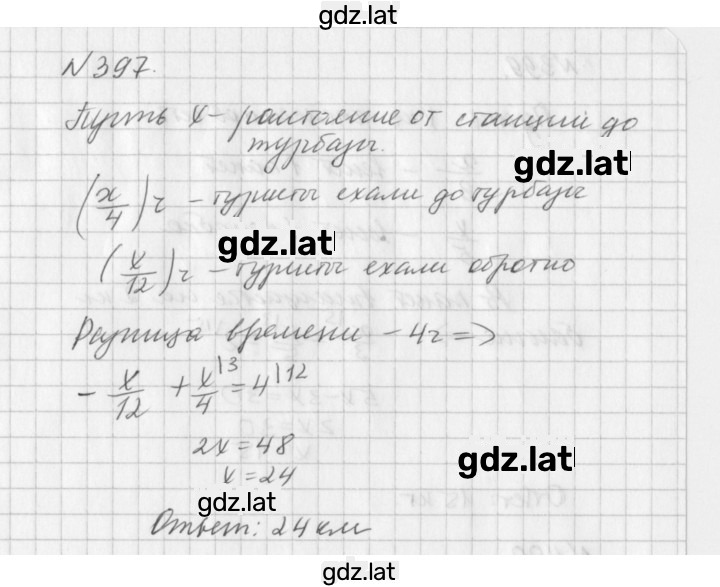 gdz.lat
N 397.
Пусть x - расстояние от станции до
турбазы.
gdz.lat
(x/4) ч - туристы ехали до турбазы
gdz.lat
(x/12) ч - туристы ехали обратно
Разница времени - 4ч =>
- x/12 + x/4 |3 = 4 |12
2x = 48
gdz.lat
x = 24
gdz.lat
Ответ: 24 км
gdz.lat